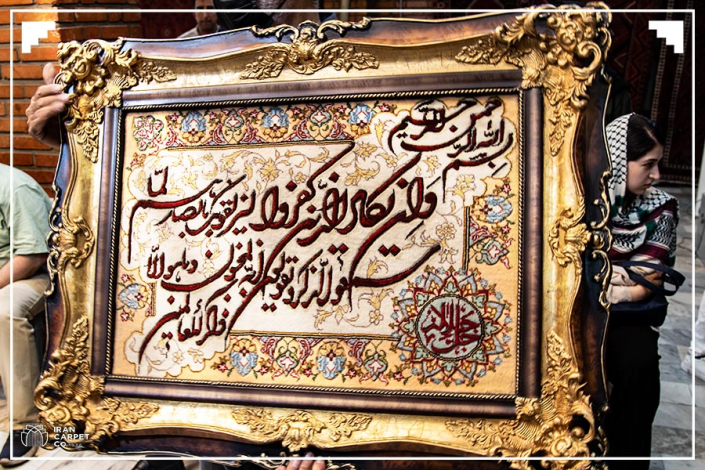 بسم الله الرحمن الرحیم
وان یکاد الذین کفروا لیزلقونک بابصارهم لما
سمعوا الذکر و یقولون انه لمجنون وما هو الا
ذکر للعالمین
جل جلاله
IRAN
CARPET
CO